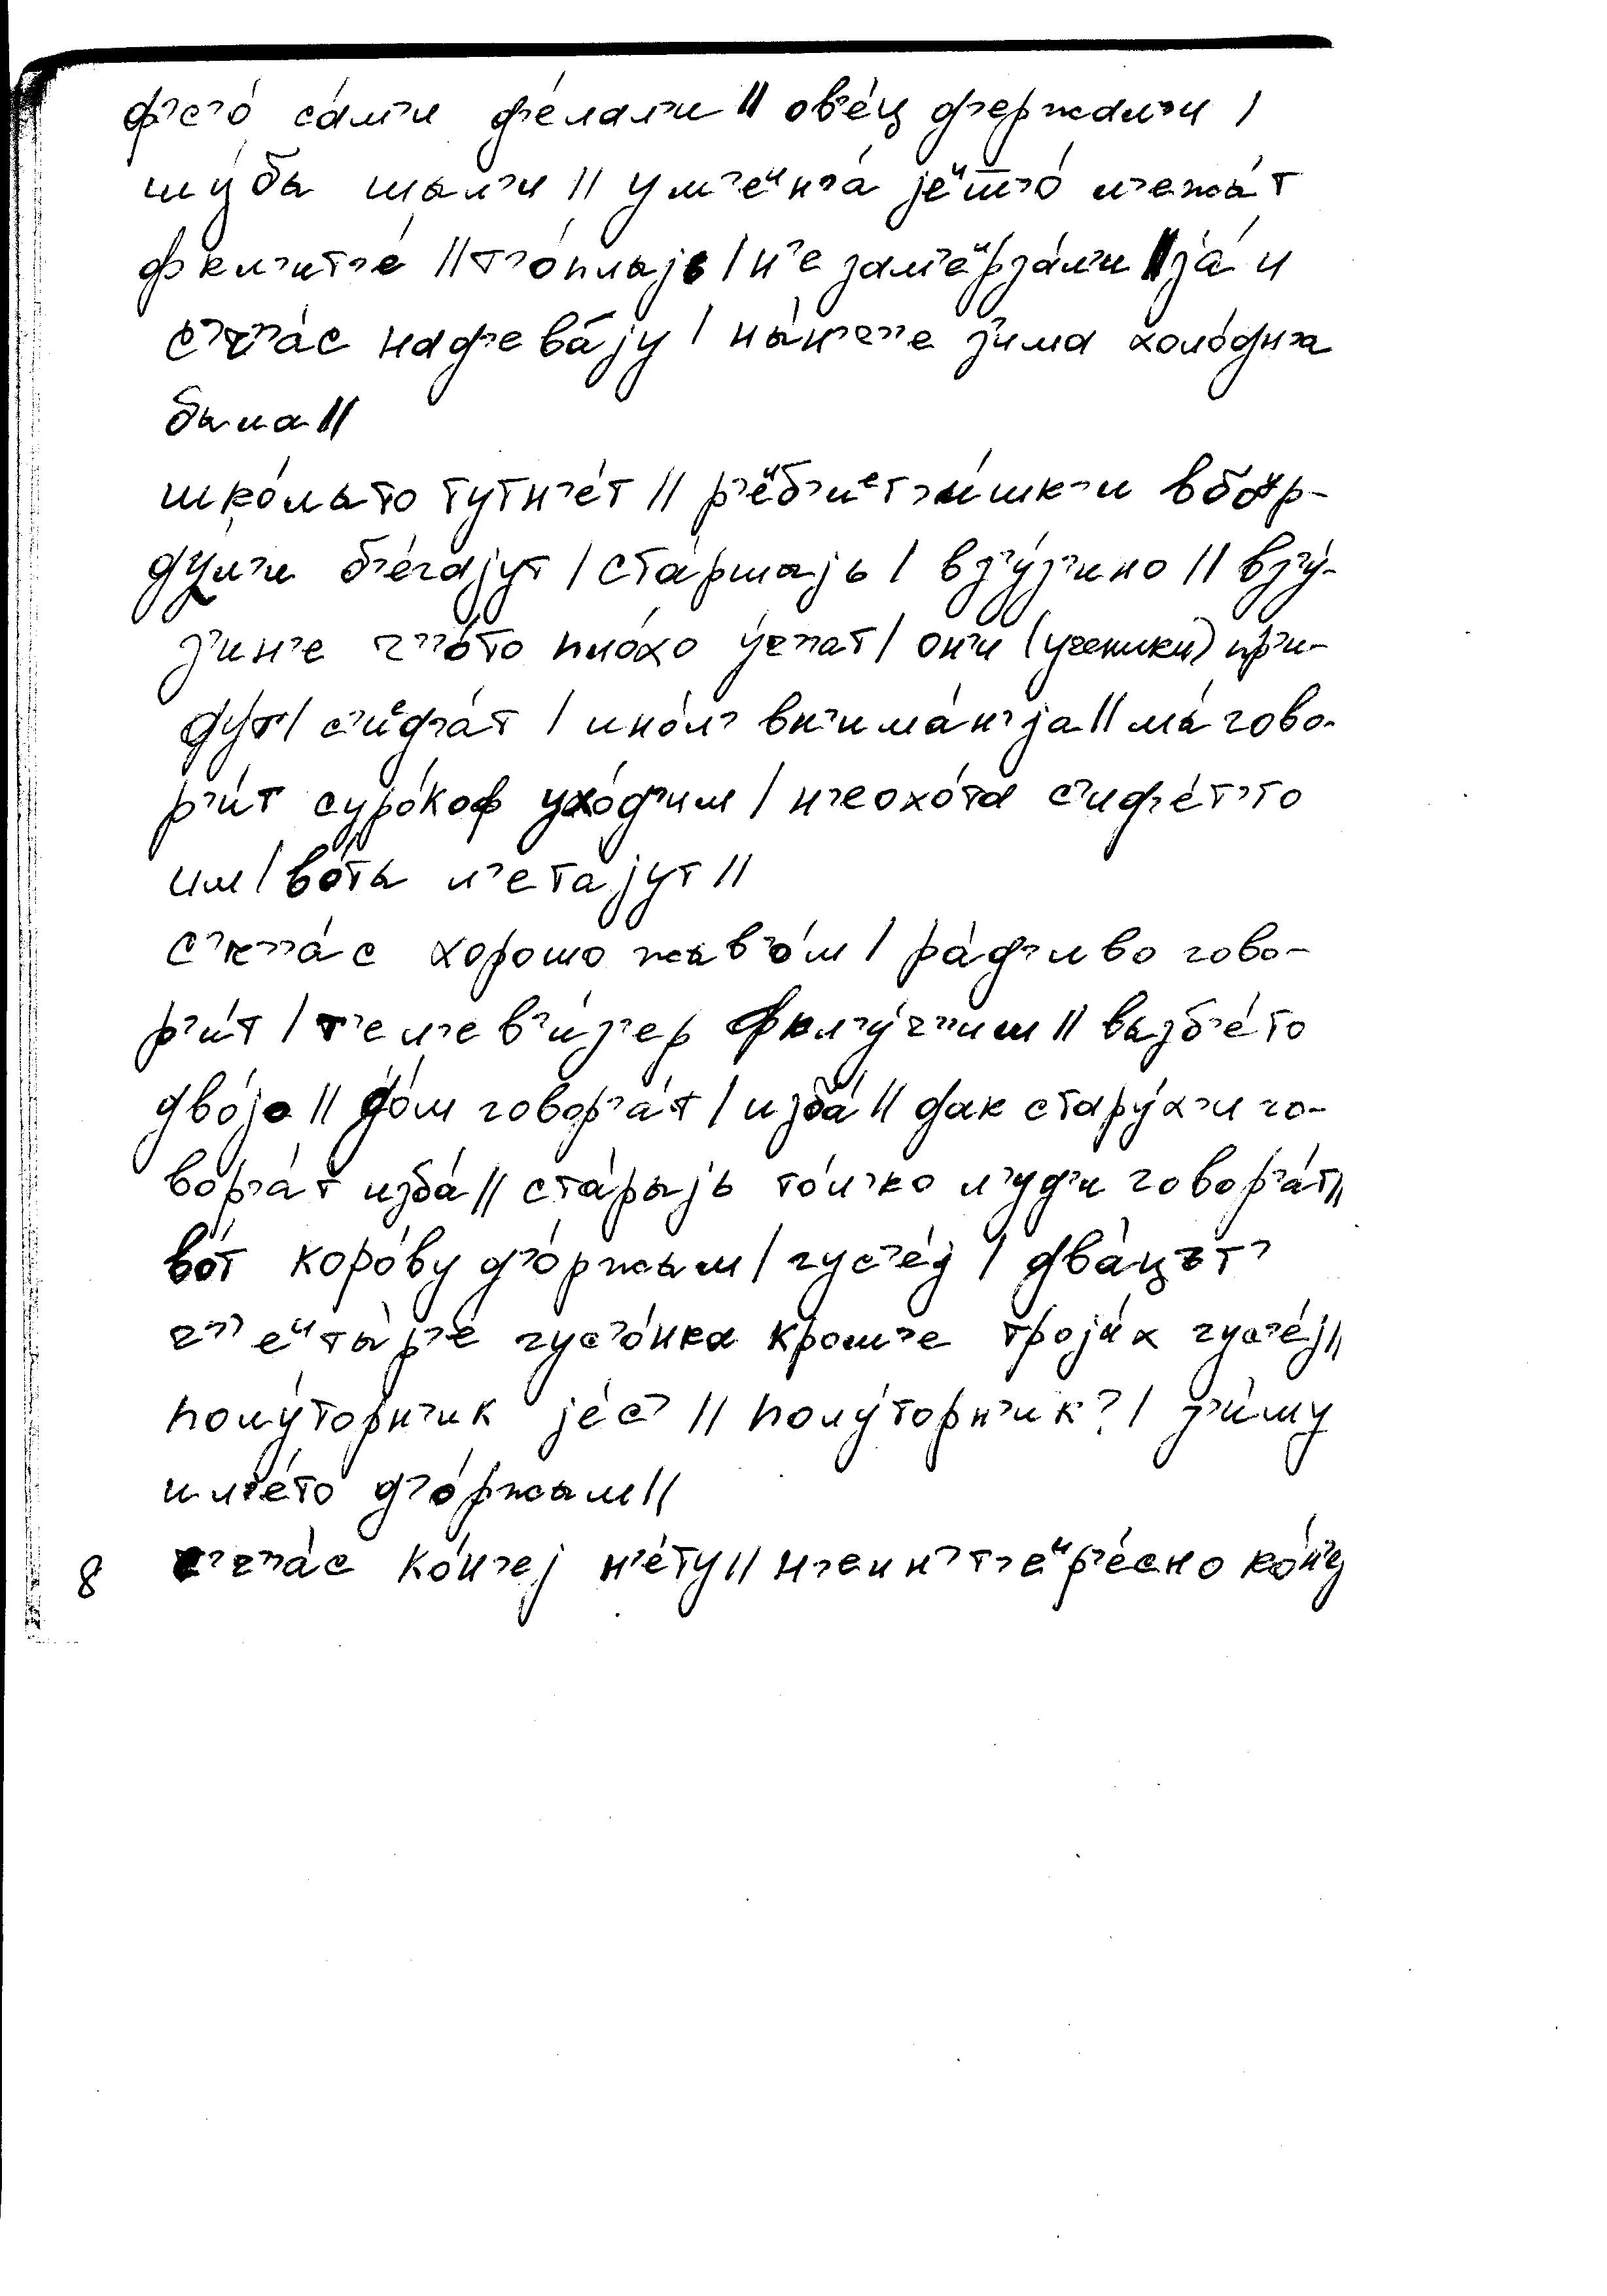 ф’с’о́ са́м’и д’е́лал’и // ов’е́ц д’ержал’и /
шу́бы шыл’и // у м’еᶸн’а́ jеᶸш̅’о́ л’ежа́т
фкл’ит’е́ // т’о́плыjь / н’е зам’еᶸрза́л’и // jа́ и
с’ч’’а́с над’ева́jу / ны́н’ч’’е з’има холо́дна
была //
шко́лы то тут н’е́т // р’еᶸб’иᵉт’и́шк’и в бур-
ду́л’и б’е́гаjут / ста́ршыjь / в з’у́з’ино // в з’у́-
з’ин’е ч’’о́то пло́хо у́ч’’ат / он’и (ученики) пр’и-
ду́т / с’иᵉд’а́т / и но́л’ вн’има́н’jа // мы́ гово-
р’и́т с уро́коф ухо́д’им / н’еохо́та с’ид’е́т’ то
им / во́ты л’етаjут //
с’ч’’а́с хорошо жыв’о́м / ра́д’иво гово-
р’и́т / т’ел’ев’и́з’ер фкл’у́ч’’им // в ызб’е́ то
дво́jо // до́м говор’а́т / изба́ // дак стару́х’и го-
вор’а́т изба́ // ста́рыjь то́л’ко л’уд’и говор’а́т //
во́т коро́ву д’о́ржым / гус’е́j / два́цът’
ч’’еᶸты́р’е гус’о́нка кром’е троjи́х гус’е́j //
полу́торн’ик jе́с’ // полу́торн’ик? / з’и́му
и л’е́то д’о́ржым //
с’ч’’а́с ко́н’еj н’е́ту // н’еин’т’еᶸр’е́сно ко́н’у
8